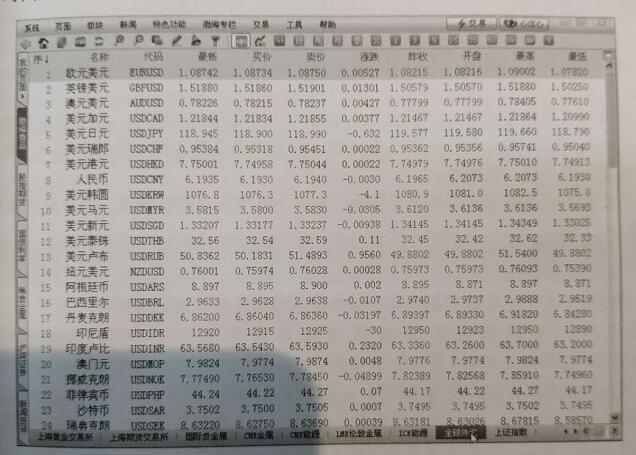 系统 页面 板块 新闻 特色功能 渤海专栏 交易 工具 帮助 交易
序↓ 名称 代码 最新 买价 卖价 涨跌 昨收 开盘 最高 最低
1 欧元美元 EURUSD 1.08742 1.08734 1.08750 0.00527 1.08215 1.08216 1.09002 1.07820
2 英镑美元 GBPUSD 1.51880 1.51860 1.51901 0.01301 1.50579 1.50570 1.51880 1.50250
3 澳元美元 AUDUSD 0.78226 0.78215 0.78237 0.00427 0.77799 0.77799 0.78405 0.77610
4 美元加元 USDCAD 1.21844 1.21834 1.21855 0.00377 1.21467 1.21467 1.21864 1.20990
5 美元日元 USDJPY 118.945 118.900 118.990 -0.632 119.577 119.580 119.660 118.790
6 美元瑞郎 USDCHF 0.95384 0.95318 0.95451 0.00022 0.95362 0.95356 0.95741 0.95040
7 美元港元 USDHKD 7.75001 7.74958 7.75044 0.00022 7.74979 7.74976 7.75010 7.74913
8 人民币 USDCNY 6.1935 6.1930 6.1940 -0.0030 6.1965 6.2073 6.2073 6.1930
9 美元韩圆 USDKRW 1076.8 1076.3 1077.3 -4.1 1080.9 1081.0 1082.5 1075.0
10 美元马元 USDMYR 3.5815 3.5800 3.5830 -0.0305 3.6120 3.6136 3.6136 3.5693
11 美元新元 USDSGD 1.33207 1.33177 1.33237 -0.00938 1.34145 1.34145 1.34349 1.33025
12 美元泰铢 USDTHB 32.56 32.54 32.59 0.11 32.45 32.42 32.62 32.33
13 美元卢布 USDRUB 50.8362 50.1831 51.4893 0.9560 49.8802 49.8802 51.5400 49.8802
14 纽元美元 NZDUSD 0.76001 0.75974 0.76028 0.00028 0.75973 0.75973 0.76093 0.75390
15 阿根廷币 USDARS 8.897 8.895 8.900 0.002 8.895 8.871 8.897 8.871
16 巴西里尔 USDBRL 2.9633 2.9628 2.9638 -0.0107 2.9740 2.9737 2.9888 2.9519
17 丹麦克朗 USDDKK 6.86200 6.86040 6.86360 -0.03197 6.89397 6.89330 6.91820 6.84280
18 印尼盾 USDIDR 12920 12915 12925 -30 12950 12923 12950 12890
19 印度卢比 USDINR 63.5680 63.5430 63.5930 0.2320 63.3360 63.2600 63.7000 63.2000
20 澳门元 USDMOP 7.9824 7.9774 7.9874 0.0048 7.9776 7.9774 7.9824 7.9774
21 挪威克朗 USDNOK 7.77490 7.76530 7.78450 -0.04899 7.82389 7.82568 7.85910 7.74960
22 菲律宾币 USDPHP 44.24 44.22 44.27 0.07 44.17 44.22 44.27 44.17
23 沙特币 USDSAR 3.7502 3.7500 3.7505 0.0007 3.7495 3.7502 3.7502 3.7495
24 瑞典克朗 USDSEK 8.63220 8.62750 8.63690 0.00039 8.63181 8.63026 8.67815 8.58570
上海黄金交易所 上海期货交易所 国际贵金属 CME金属 CME能源 LME伦敦金属 ICE能源 全球外汇 上证指数